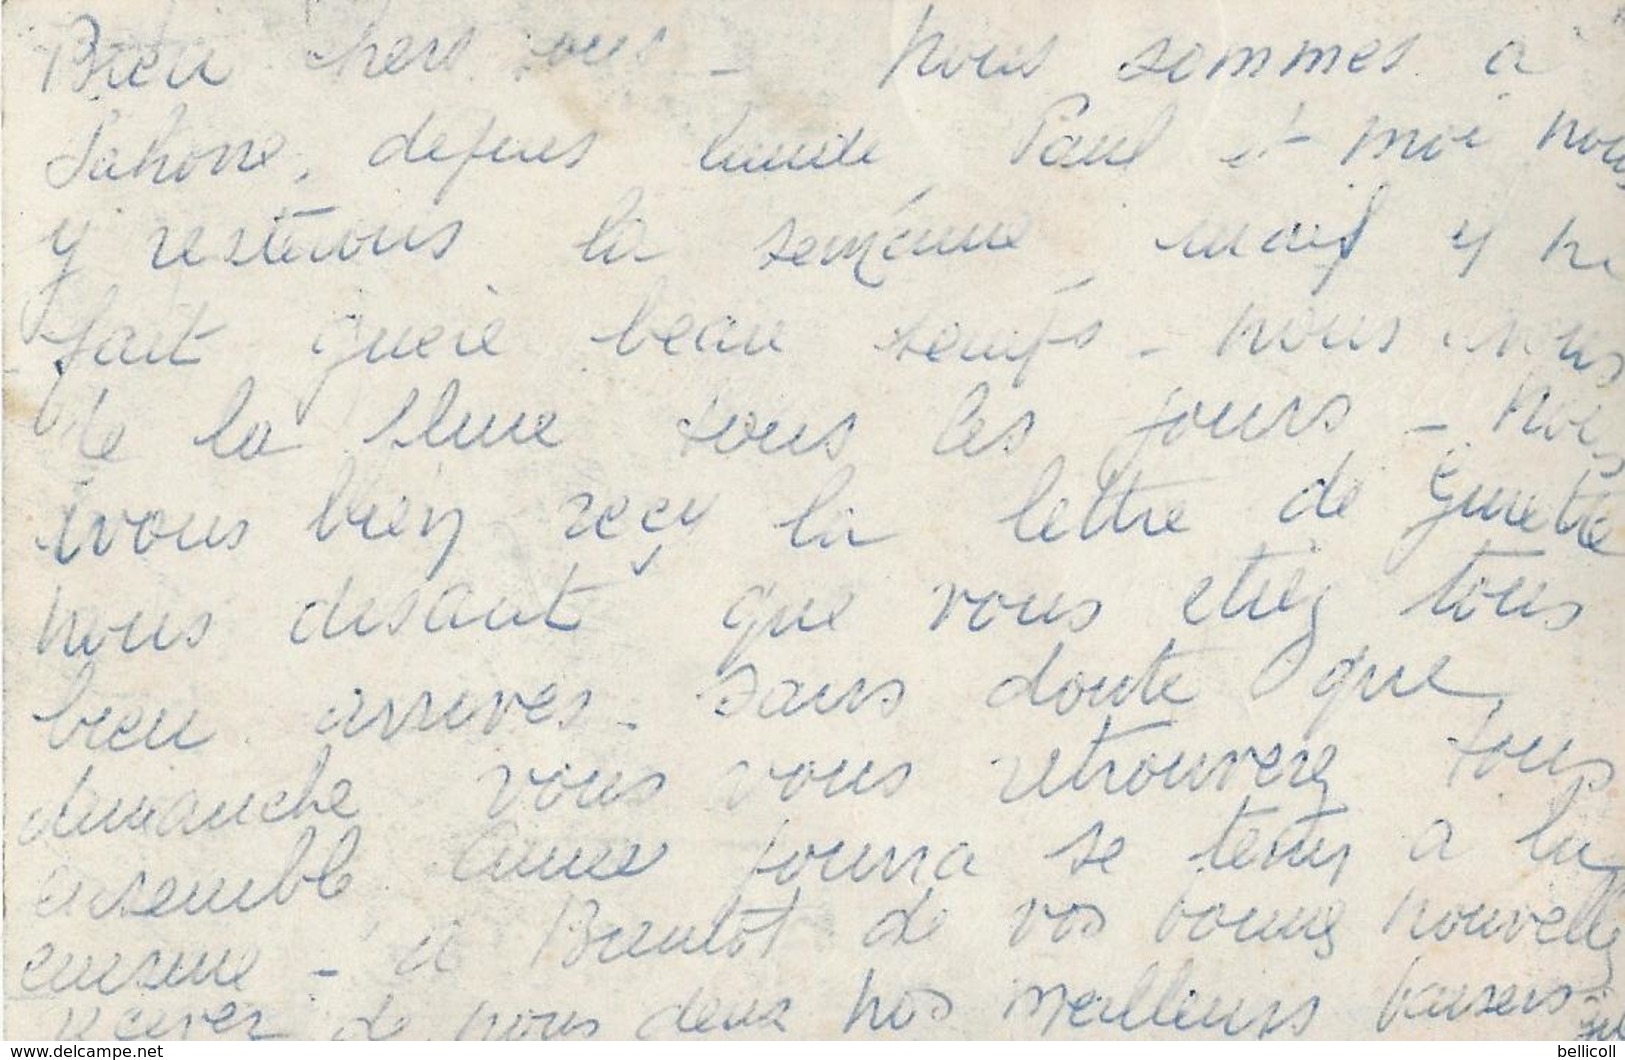 Bien chers tous - Nous sommes à
depuis lundi, Paul et moi nous
y resterons la semaine, mais y ne
fait guère beau temps - nous avons
de la pluie tous les jours - nous
avons bien reçu la lettre de Ginette
nous disant que vous etiez tous
bien arrivés - sans doute que
dimanche vous vous retrouverez tous
ensemble pourra se tenir a la
cuisine - à Bientôt de vos bonnes nouvelles
recevez de nous deux nos meilleurs baisers
bellicoll